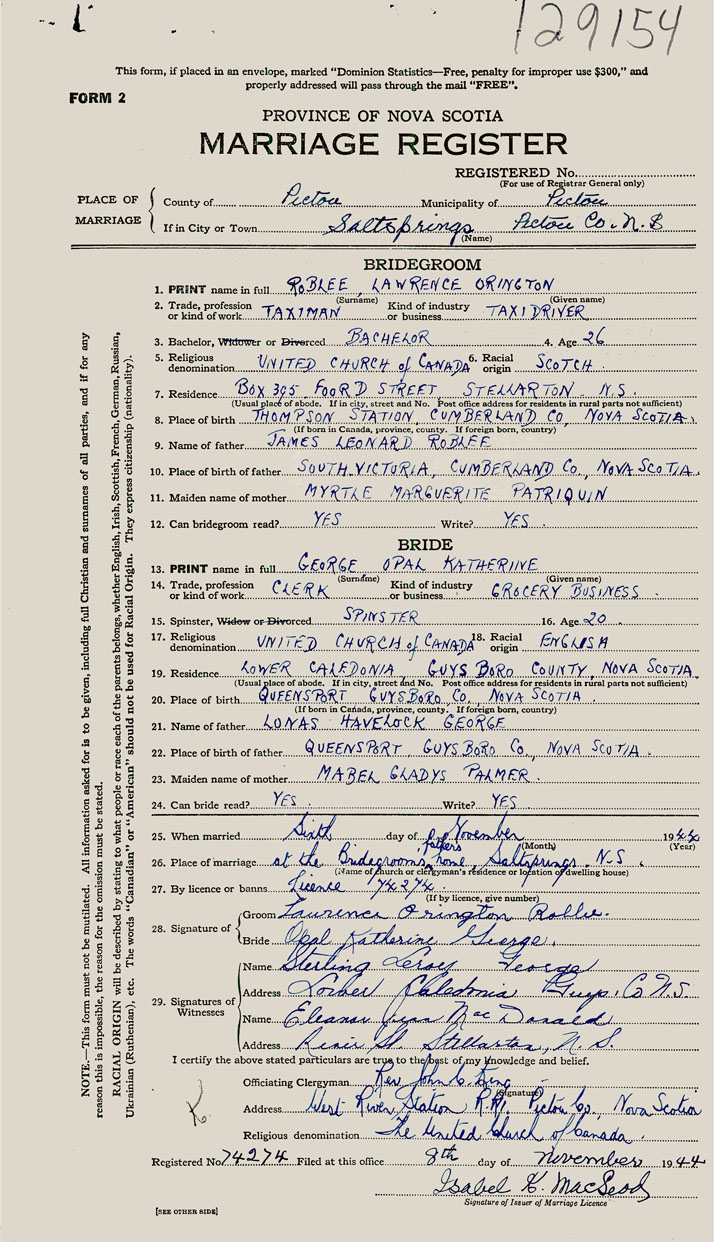 129154
This form, if placed in an envelope, marked "Dominion Statistics—Free, penalty for improper use $300," and
properly addressed will pass through the mail "FREE".
FORM 2
PROVINCE OF NOVA SCOTIA
MARRIAGE REGISTER
REGISTERED No.
(For use of Registrar General only)
PLACE OF MARRIAGE
County of Pictou Municipality of Pictou
If in City or Town Saltsprings Pictou Co. N.S
(Name)
BRIDEGROOM
1. PRINT name in full ROBLEE, LAWRENCE ORINGTON
(Surname) (Given name)
2. Trade, profession or kind of work TAXIMAN Kind of industry or business TAXI DRIVER
3. Bachelor, Widower or Divorced BACHELOR 4. Age 26
5. Religious denomination UNITED CHURCH of CANADA 6. Racial origin SCOTCH
7. Residence BOX 395 FOORD STREET STELLARTON N.S.
(Usual place of abode. If in city, street and No. Post office address for residents in rural parts not sufficient)
8. Place of birth THOMPSON STATION, CUMBERLAND CO, NOVA SCOTIA.
(If born in Canada, province, county. If foreign born, country)
9. Name of father JAMES LEONARD ROBLEE
10. Place of birth of father SOUTH VICTORIA, CUMBERLAND CO., NOVA SCOTIA.
11. Maiden name of mother MYRTLE MARGUERITE PATRIQUIN
12. Can bridegroom read? YES Write? YES.
BRIDE
13. PRINT name in full GEORGE OPAL KATHERINE
(Surname) (Given name)
14. Trade, profession or kind of work CLERK Kind of industry or business GROCERY BUSINESS.
15. Spinster, Widow or Divorced SPINSTER 16. Age 20.
17. Religious denomination UNITED CHURCH of CANADA 18. Racial origin ENGLISH
19. Residence LOWER CALEDONIA GUYSBORO COUNTY, NOVA SCOTIA.
(Usual place of abode. If in city, street and No. Post office address for residents in rural parts not sufficient)
20. Place of birth QUEENSPORT GUYSBORO CO., NOVA SCOTIA.
(If born in Canada, province, county. If foreign born, country)
21. Name of father LONAS HAVELOCK GEORGE
22. Place of birth of father QUEENSPORT GUYSBORO CO., NOVA SCOTIA.
23. Maiden name of mother MABEL GLADYS PALMER.
24. Can bride read? YES. Write? YES.
25. When married Sixth day of November 1944
(Month) (Year)
26. Place of marriage at the Bridegrooms fathers home, Saltsprings, N.S.
(Name of church or clergyman's residence or location of dwelling house)
27. By licence or banns Licence 74274.
(If by licence, give number)
28. Signature of
Groom Laurence Orington Roblee.
Bride Opal Katherine George.
29. Signatures of Witnesses
Name Sterling Leroy George
Address Lower Caledonia Guys. Co N.S
Name Eleanor MacDonald
Address St. Stellarton, N.S.
I certify the above stated particulars are true to the best of my knowledge and belief.
Officiating Clergyman Rev. John C. King
(Signature)
Address West River Station R.R. Pictou Co., Nova Scotia
Religious denomination The United Church of Canada.
Registered No. 74274 Filed at this office 8th day of November 1944
Isabel K. MacLeod
Signature of Issuer of Marriage Licence
[SEE OTHER SIDE]
NOTE.—This form must not be mutilated. All information asked for is to be given, including full Christian and surnames of all parties, and if for any
reason this is impossible, the reason for the omission must be stated.
RACIAL ORIGIN will be described by stating to what people or race each of the parents belongs, whether English, Irish, Scottish, French, German, Russian,
Ukrainian (Ruthenian), etc. The words "Canadian" or "American" should not be used for Racial Origin. They express citizenship (nationality).